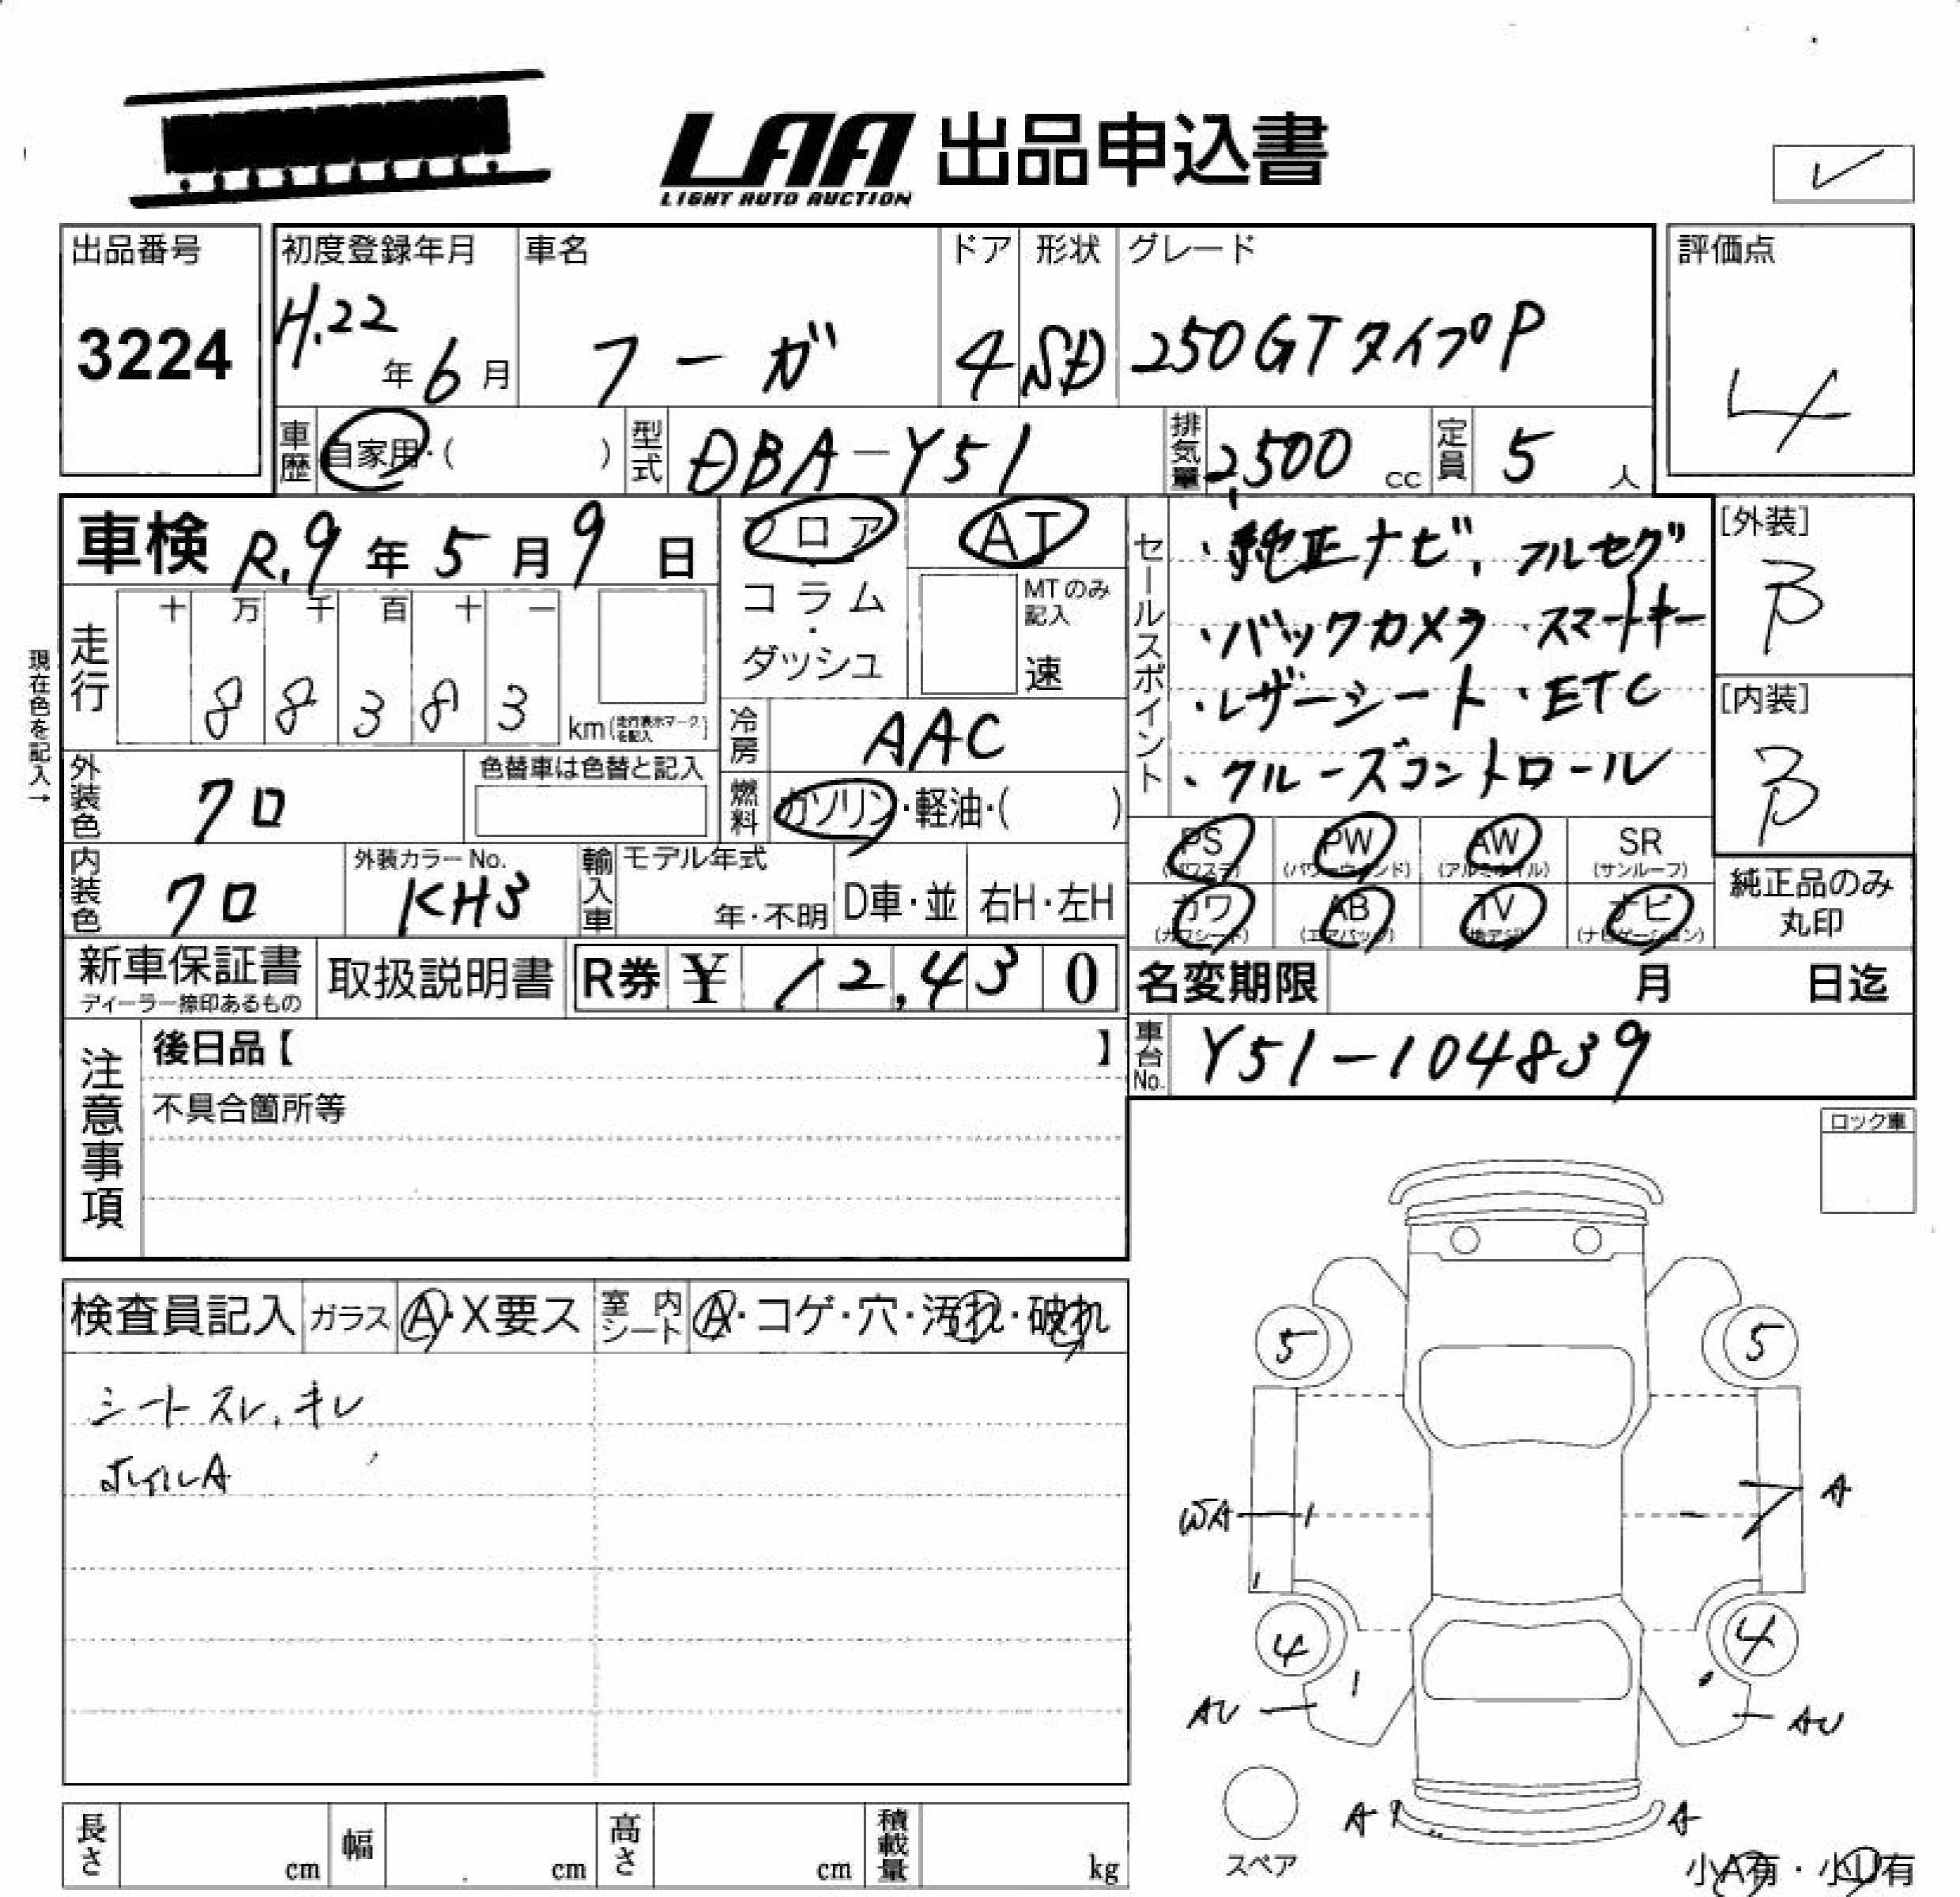 LAA 出品申込書
LIGHT AUTO AUCTION
✓
出品番号
3224
初度登録年月
H.22年6月
車名
フーガ
ドア
4
形状
SD
グレード
250GTタイプP
評価点
4
車歴 自家用・( )
型式 DBA-Y51
排気量 2,500 cc
定員 5 人
車検 R.9年5月9日
フロア・コラム・ダッシュ
AT
MTのみ記入
速
セールスポイント
・純正ナビ、フルセグ
・バックカメラ・スマートキー
・レザーシート・ETC
・クルーズコントロール
[外装]
B
[内装]
B
現在色を記入→
走行
十 万 千 百 十 一
8 8 3 8 3
km(走行表示マークを記入)
冷房 AAC
燃料 ガソリン・軽油・( )
外装色 クロ
色替車は色替と記入
内装色 クロ
外装カラーNo.
KH3
輸入車
モデル年式
年・不明
D車・並
右H・左H
PS (パワステ)
PW (パワーウィンド)
AW (アルミホイル)
SR (サンルーフ)
カワ (カワシート)
AB (エアバッグ)
TV (地デジ)
ナビ (ナビゲーション)
純正品のみ丸印
新車保証書
ディーラー捺印あるもの
取扱説明書
R券 ¥ 12,430
名変期限 月 日迄
車台No. Y51-104839
注意事項
後日品【 】
不具合箇所等
ロック車
検査員記入
ガラス A・X要ス
室内シート A・コゲ・穴・汚れ・破れ
シートスレ、キレ
ホイルA
5 5
A
WA
4 4
AU AU
A A
スペア
小A有・小U有
長さ cm
幅 cm
高さ cm
積載量 kg